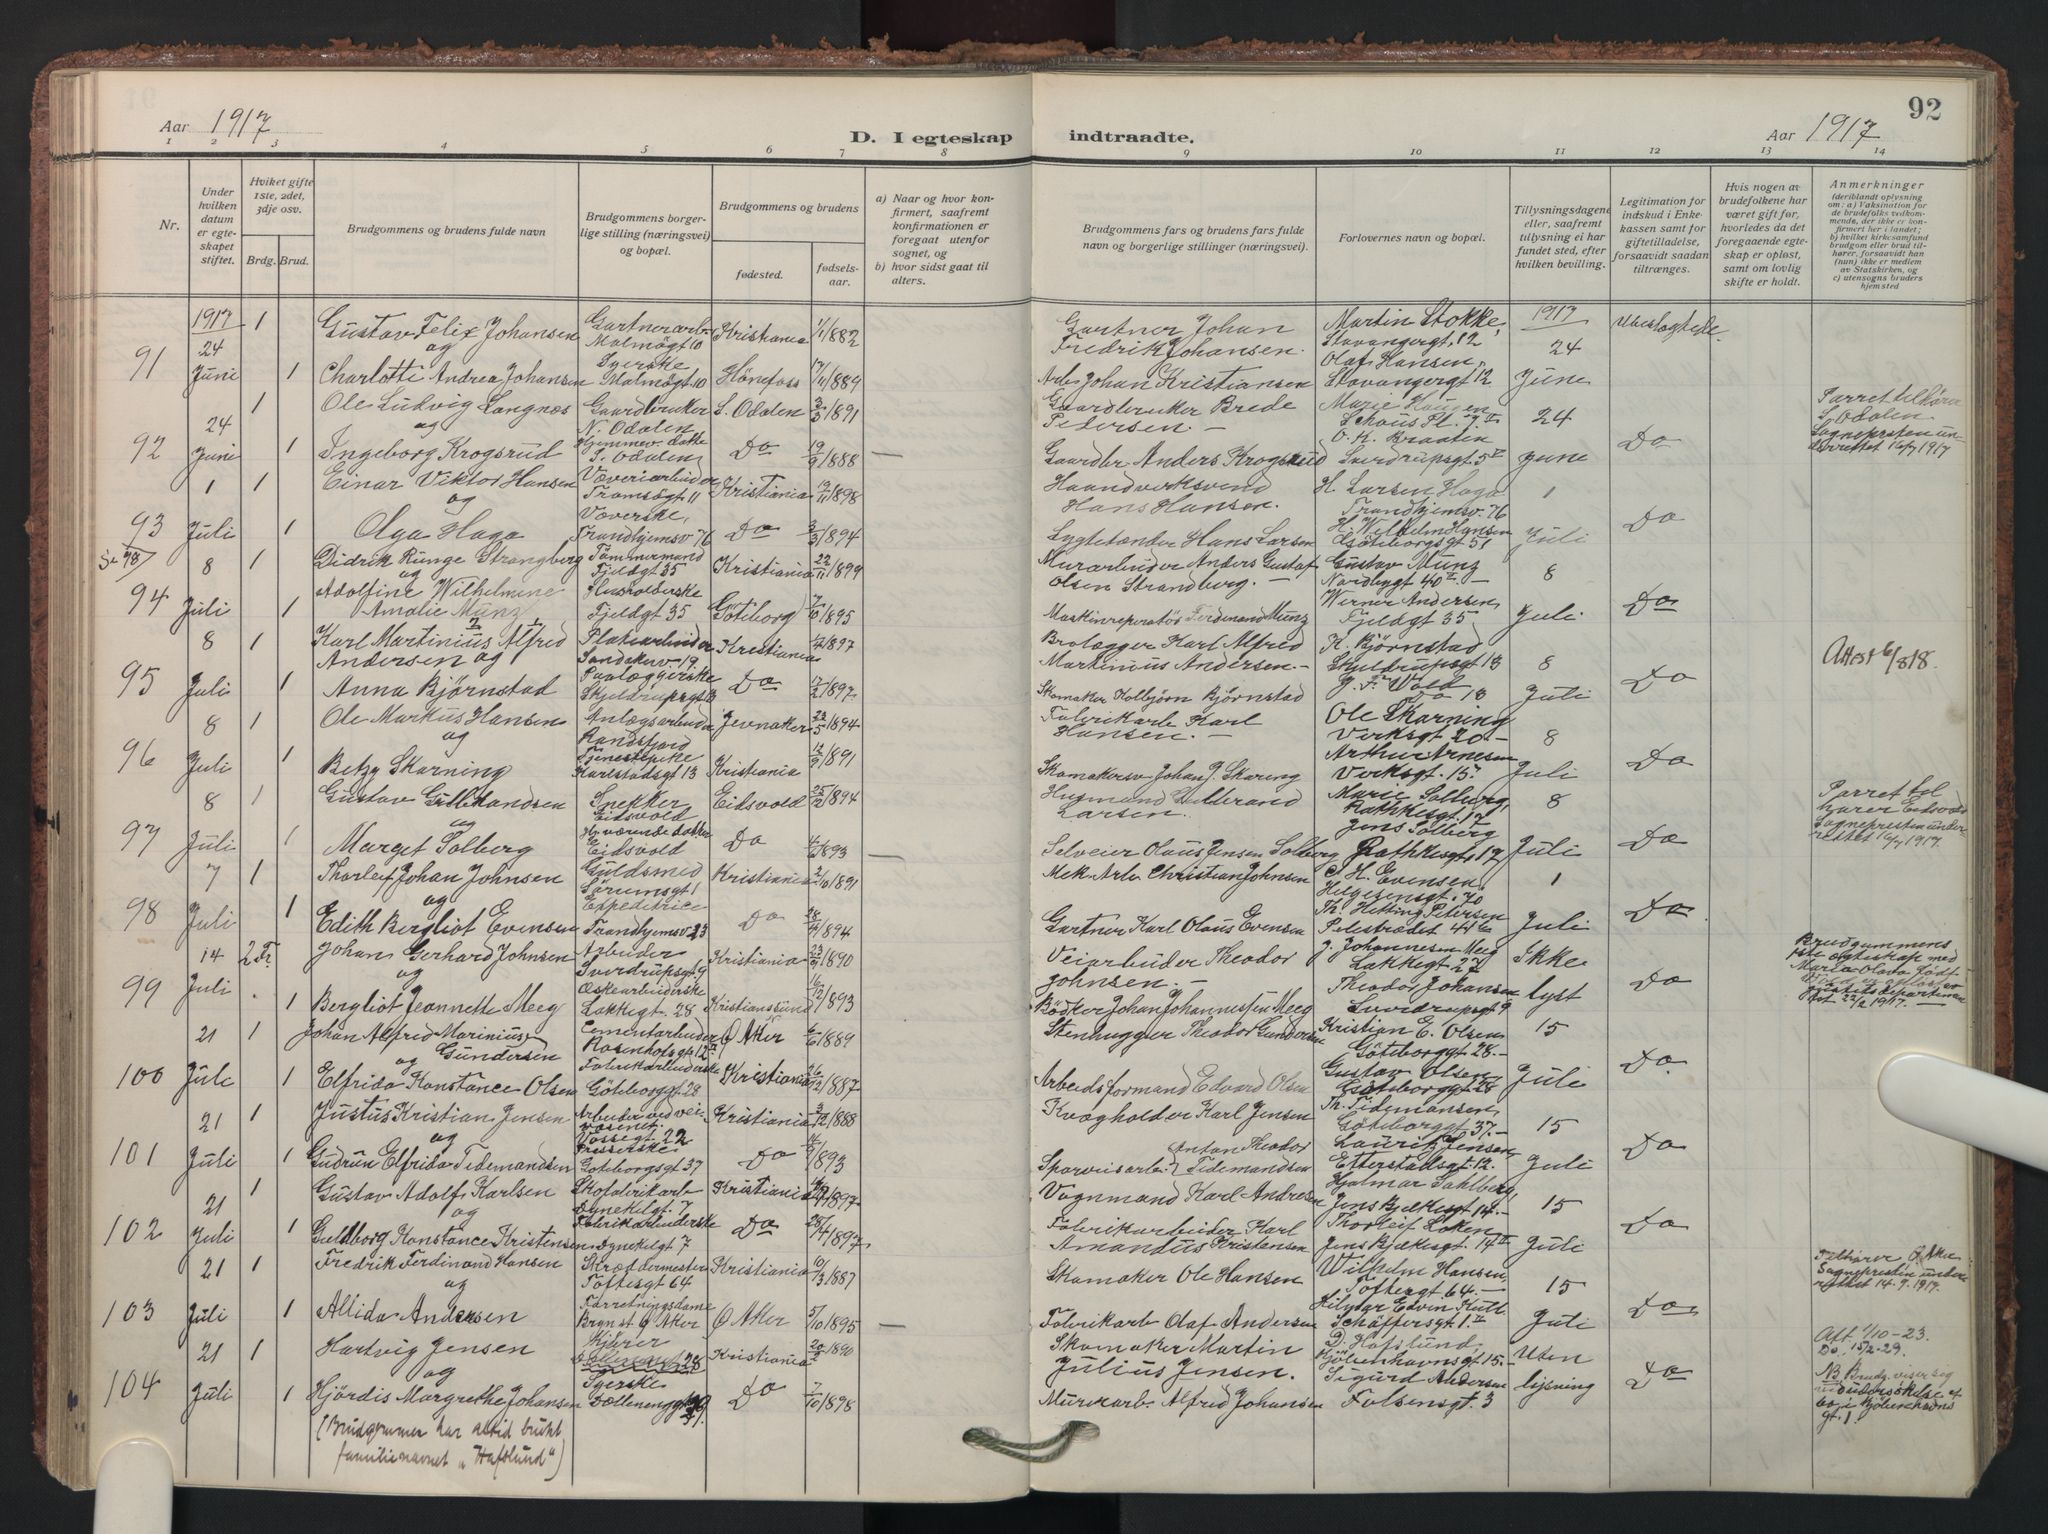 92
Aar 1917
D. I egteskap indtraadte.
Aar 1917
1 2 3 4 5 6 7 8 9 10 11 12 13 14
Nr.
Under hvilken datum er egteskapet stiftet.
Hviket gifte 1ste, 2det, 3dje osv.
Brdg. Brud.
Brudgommens og brudens fulde navn
Brudgommens borgerlige stilling (næringsvei) og bopæl.
Brudgommens og brudens
fødested.
fødselsaar.
a) Naar og hvor konfirmert, saafremt konfirmationen er foregaat utenfor sognet, og
b) hvor sidst gaat til alters.
Brudgommens fars og brudens fars fulde navn og borgerlige stillinger (næringsvei).
Forlovernes navn og bopæl.
Tillysningsdagene eller, saafremt tillysning ei har fundet sted, efter hvilken bevilling.
Legitimation for indskud i Enkekassen samt for giftetilladelse, forsaavidt saadan tiltrænges.
Hvis nogen av brudefolkene har været gift før, hvorledes da det foregaaende egteskap er opløst, samt om lovlig skifte er holdt.
Anmerkninger (deriblandt oplysning om: a) Vaksination for de brudefolks vedkommende, der ikke er konfirmert her i landet; b) hvilket kirkesamfund brudgom eller brud tilhører, forsaavidt han (hun) ikke er medlem av Statskirken, og c) utensogns bruders hjemsted
91 1917 24 Juni 1 Gustav Felix Johansen og Gartnerarb. Malmøgt 10 Kristiania 1/1 1882 Gartner Johan Fredrik Johansen. Martin Stokke, Stavangergt. 12 1917 24 June Ubeslegtede.
1 Charlotte Andrea Johansen Syerske Malmøgt 10 Hønefoss 1889 Arb. Johan Kristiansen Olaf Hansen, Stavangergt 12
92 24 Juni 1 Ole Ludvig Langnæs og Gaardbruker N. Odalen S. Odalen 3/3 1891 Gaardbruker Brede Pedersen. Marie Haugen Schous Pl. 7 24 June Do
1 Ingeborg Krogsrud S. Odalen Do 19/9 1888 Gaardbr Anders Krogsrud O. K. Braaten Sverdrupsgt 5
Parret tilhører S. Odalen. Sognepresten underrettet 16/7 1917
93 1 Juli 1 Einar Viktor Hansen og Væveriarbeider Tromsøgt 11 Kristiania 19/11 1898 Haandverksvend Hans Hansen. H. Larsen Haga Trondhjemsv. 76 1 Juli Do
1 Olga Haga Væverske, Trondhjemsv 76 Do 3/3 1894 Lygtetænder Hans Larsen H. Wilhelm Hansen Gøteborgsgt 51
Se 98
94 8 Juli Didrik Runge Strangberg og Tømmermand Fjeldgt 35 Kristiania 22/11 1899 Murarbeider Anders Gustaf Olsen Strandberg. Gustav Munz Nordbygt 40 8 Juli Do
1 Adolfine Wilhelmine Amalie Munz Husholderske Fjeldgt 35 Göteborg 7/10 1895 Maskinreperatør Ferdinand Munz Werner Andersen Fjeldgt 35
95 8 Juli 1 Karl Martinius Alfred Andersen og Platearbeider Sandakerv 19. Kristiania 1897 Brolægger Karl Alfred Martinius Andersen. K. Bjørnstad Skjeldrupsgt 13 8 Juli Do
Anna Bjørnstad Paalæggerske Skjeldrupsgt 13 Do 17/2 1897. Skomaker Kolbjørn Bjørnstad J. Fr. Wold Do 13
Attest 6/8 18.
96 8 Juli 1 Ole Markus Hansen og Anlægsarbeider Randsfjord Jevnaker 23/5 1894 Fabrikarb. Karl Hansen. Ole Skarning Verksgt 20. 8 Juli Do
1 Betzy Skarning Tjenestepike Karlstadsgt 13 Kristiania 1891 Skomakersv Johan J. Skaring Arthur Arnesen Verksgt. 15
97 8 Juli 1 Gustav Gulbrandsen og Snekker Eidsvold Eidsvold 25/12 1894 Husmand Gulbrand Larsen. Marie Solberg, Rathkesgt. 17 8 Juli Do
1 Marget Solberg Eidsvold Do 1893 Selveier Olaus Jensen Solberg Jens Solberg Rathkesgt, 17
Parret tilhører Eidsvold Sognepresten underrettet 16/7 1917.
98 7 Juli 1 Thorleif Johan Johnsen og Guldsmed Sørumsgt 1 Kristiania 2/10 1891 Mek. Arb. Christian Johnsen C. H. Evensen, Helgesensgt. 70 1 Juli Do
1 Edith Bergliot Evensen Expeditrice Trondhjemsv 23 Do 1894 Gartner Karl Olaus Evensen Th. Hetting Petersen Pilestrædet
99 14 Juli 2 Fr. Johan Gerhard Johnsen og Arbeider Sverdrupsgt 9 Kristiania 1890 Veiarbeider Theodor Johnsen. J. Johannesen Meeg Lakkegt 27 Ikke lyst Do
1 Bergliot Jeannette Meeg Æskearbeiderske Lakkegt. 28 Kristianssund 1893 Bödker Johan Johannesen Meeg Theodor Johansen Sverdrupsgt 9
Brudgommens 1ste egteskap med Maria Olava født
100 21 Jule 1 Johan Alfred Marinius Gundersen og Cementarbeider Rosenhofsgt 12 Ø Aker 1889 Stenhugger Theodor Gundersen Kristian E. Olsen Göteborggt 28. 15 Juli Do.
1 Elfrida Konstance Olsen Fabrikarbeiderske Göteborggt 28 Kristiania 26/12 1887 Arbeidsformand Edvard Olsen Gustav Olsen Göteborggt 28
101 21 Juli 1 Justus Kristian Jensen og Arbeider ved veivæsenet. Vossegt. 22 Kristiania 1888 Kvægholder Karl Jensen Th. Tidemansen, Göteborggt 37. 15 Juli Do
1 Gudrun Elfrida Tidemandsen Göteborgsgt 37 Do 1893 Sporveisarb. Anton Theodor Tidemandsen Lauritz Jensen Etterstadsgt. 12.
102 21 Juli 1 Gustav Adolf Karlsen og Skofabrikarb. Dynekilgt. 7 Kristiania 1897. Vognmand Karl Andresen Hjalmar Sahlberg, Jens Bjelkesgt 14. 15 Juli Do
1 Guldborg Konstance Kristensen Fabrikarbeiderske Dynekilgt 7 Do 28/4 1897. Fabrikarbeider Karl Amandus Kristensen Thorleif Løken Jens Bjelkesgt. 14
103 21 Juli 1 Fredrik Ferdinand Hansen og Skræddermester Toftesgt 64 Kristiania 10/3 1887 Skomaker Ole Hansen Wilhelm Hansen, Toftesgt 64. 15 Juli Do
1 Allida Andersen Forretningsdame Brynst Ø Aker Ø Aker 5/10 1895 Fabrikarb Olaf Andersen Edvin Schäffersgt 1
Tilhører Ø Aker Sognepresten underrettet 14.7.1917.
104 21 Juli 1 Hartvig Jensen og Kjører 28 Kristiania 20/2 1890 Skomaker Martin Julius Jensen. D. Hofslund, Kjøbenhavnsgt 15. Uten lysning Do
1 Hjördis Margrethe Johansen Syerske Dælleneng Do 7/10 1898 Murarb. Alfred Johansen Sigurd Andersen Falsensgt. 3
Att. 1/10 - 23. Do, 15/2-29.
NB Brudg. viser sig
(Brudgommer har altid brukt
familienavnet „Hafslund")